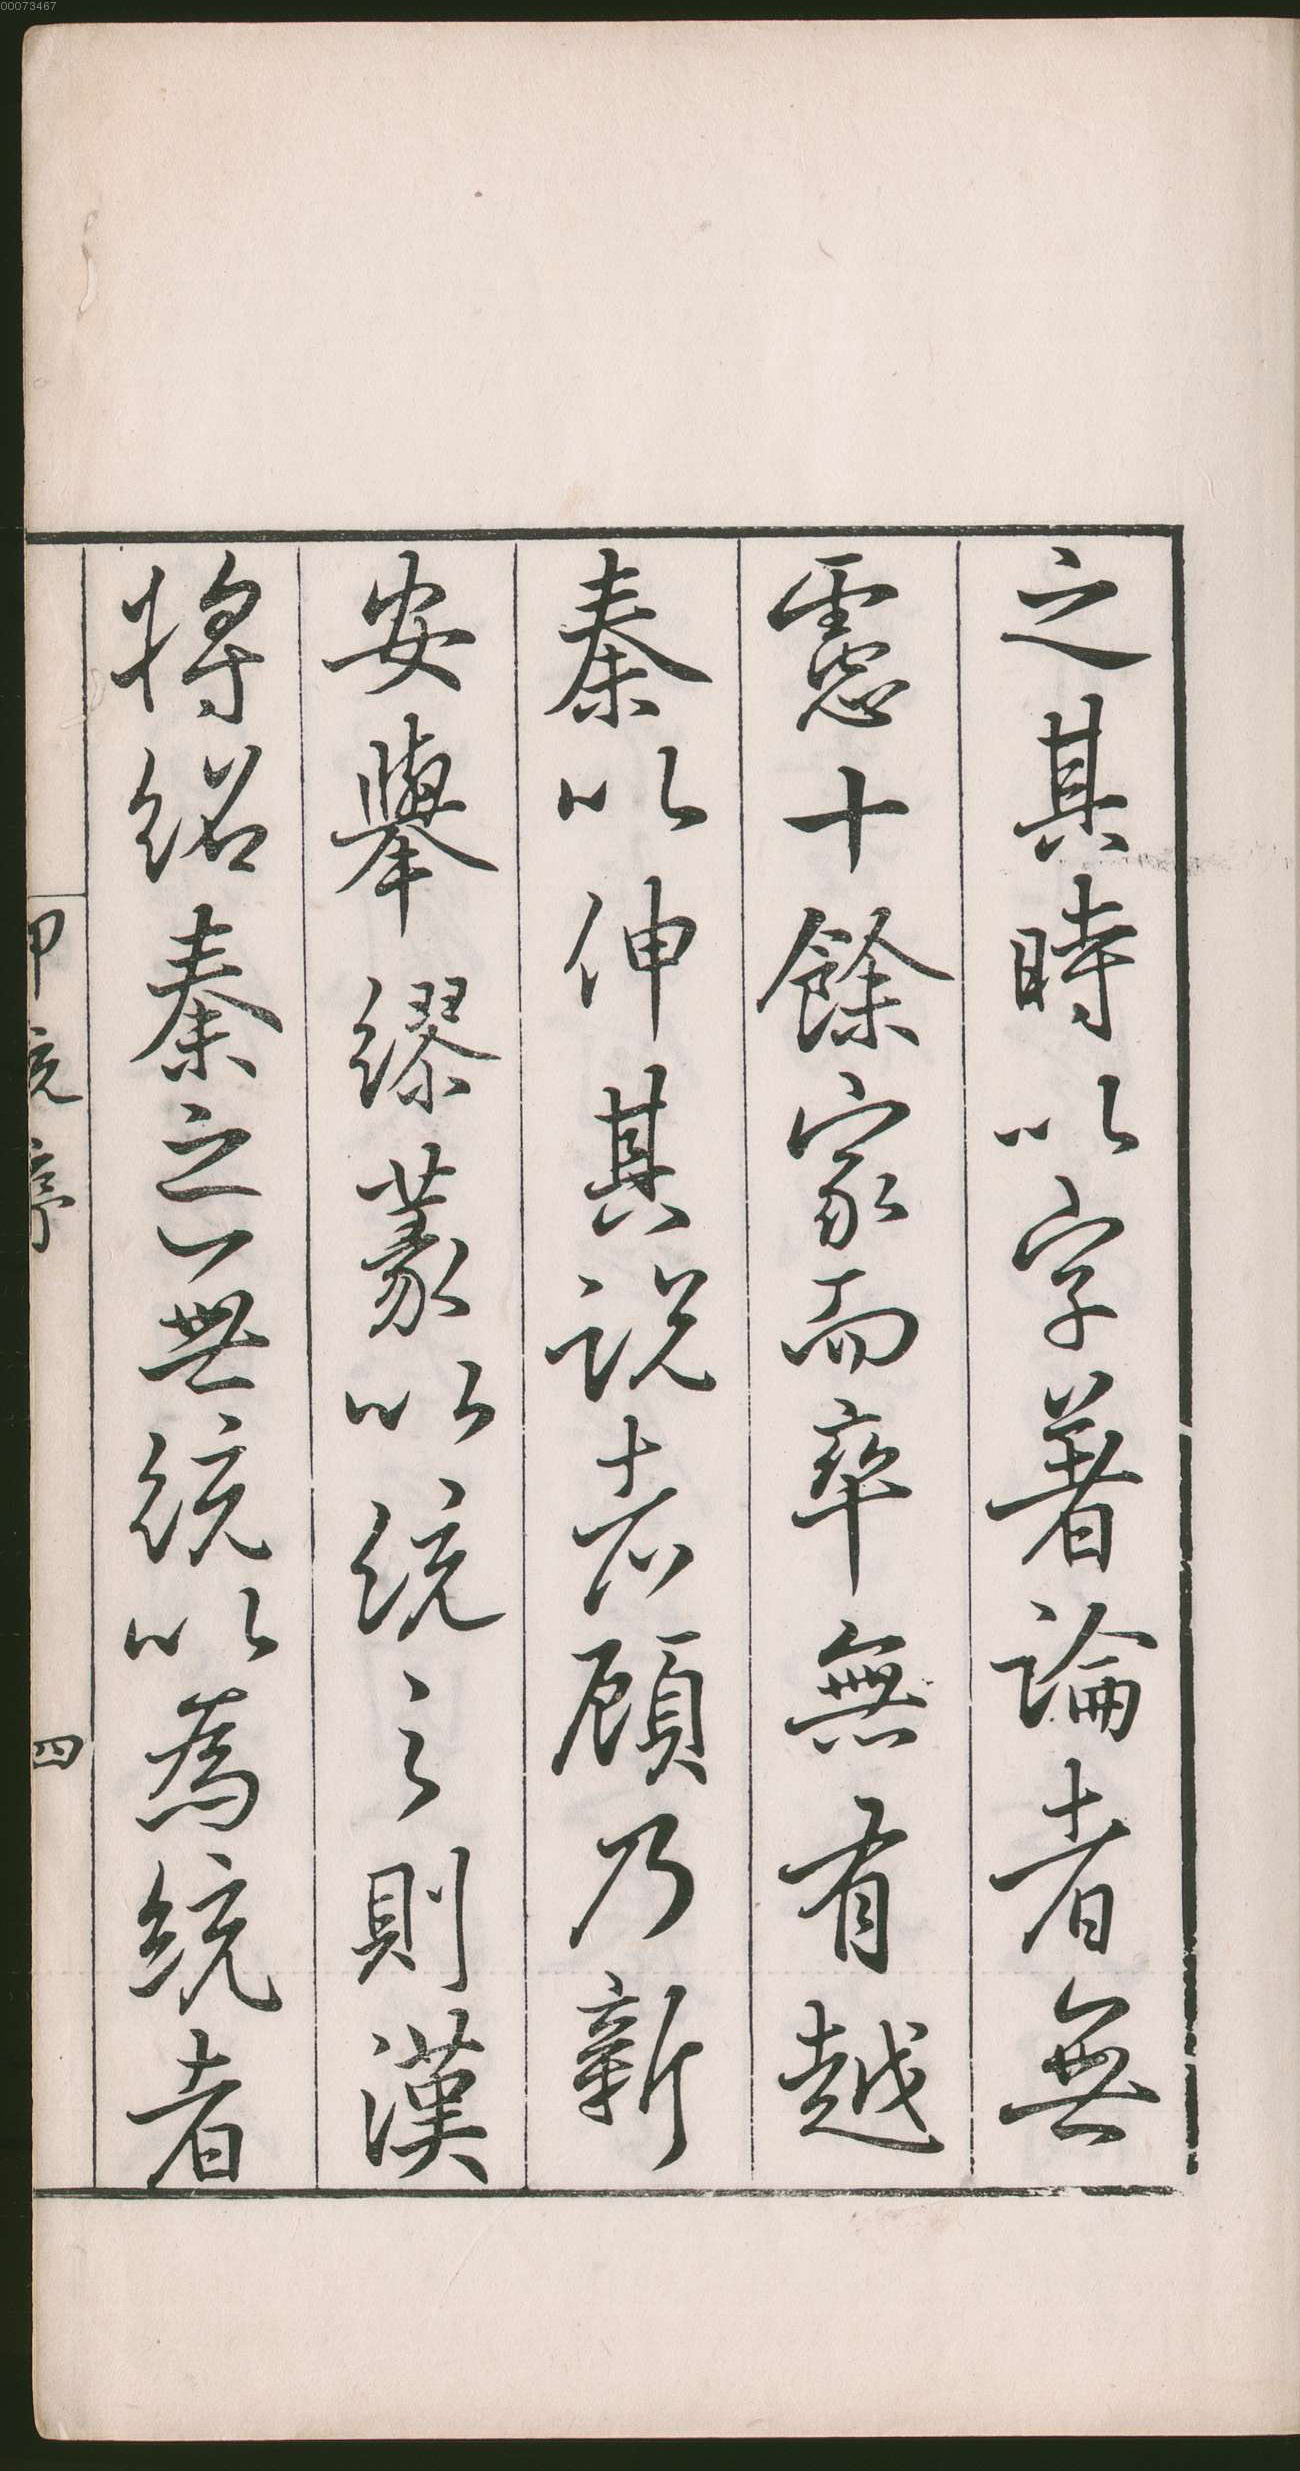 之其時以字著論者無
慮十餘家而率無有越
秦以伸其説者顧乃新
安舉繆篆以統之則漢
將紹秦之一無統以為統者
四
00073467